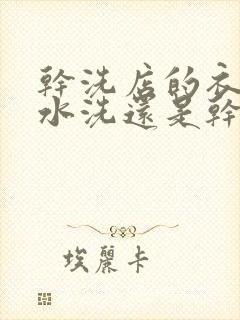 幹洗店的衣
水洗還是幹
埃麗卡